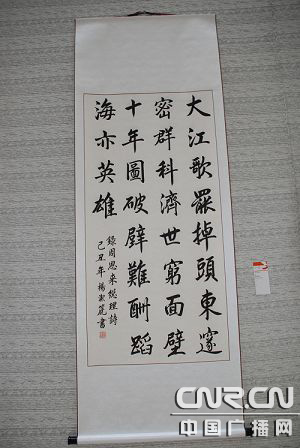 大江歌罷掉頭東邃
密群科濟世窮面壁
十年圖破壁難酬蹈
海亦英雄
錄周恩来總理詩
己丑年楊淑範書
CNR.CN
中国广播网